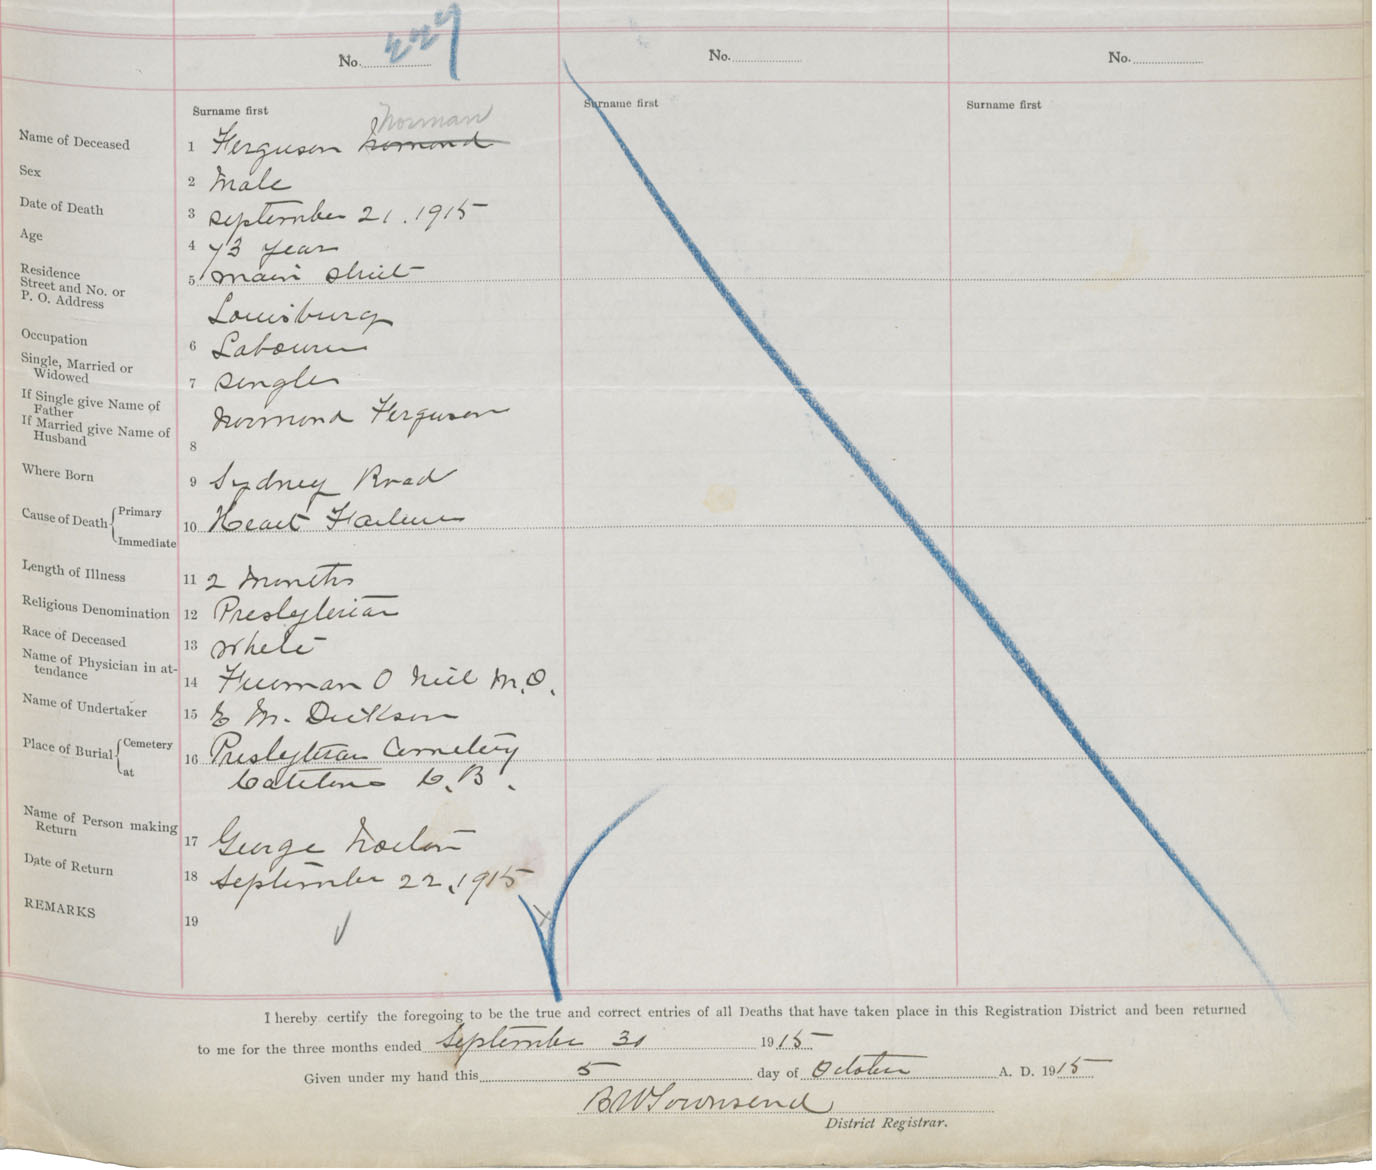 No. 229 No. No.
Surname first Surname first Surname first
Norman
Name of Deceased 1 Ferguson Normond
Sex 2 Male
Date of Death 3 september 21. 1915
Age 4 73 year
Residence
Street and No. or 5 main street
P. O. Address
Louisburg
Occupation 6 Labourer
Single, Married or
Widowed 7 single
If Single give Name of
Father Normond Ferguson
If Married give Name of
Husband 8
Where Born 9 Sydney Road
Cause of Death { Primary 10 Heart Failure
Immediate
Length of Illness 11 2 Months
Religious Denomination 12 Presbyterian
Race of Deceased 13 White
Name of Physician in at-
tendance 14 Freeman O Neil M.D.
Name of Undertaker 15 E M. Dickson
Place of Burial { Cemetery 16 Presbyterian Cemetery
at Catalone C.B.
Name of Person making
Return 17 George
Date of Return 18 September 22, 1915
REMARKS 19
I hereby certify the foregoing to be the true and correct entries of all Deaths that have taken place in this Registration District and been returned
to me for the three months ended September 30 1915
Given under my hand this 5 day of October A. D. 1915
B W Townsend
District Registrar.